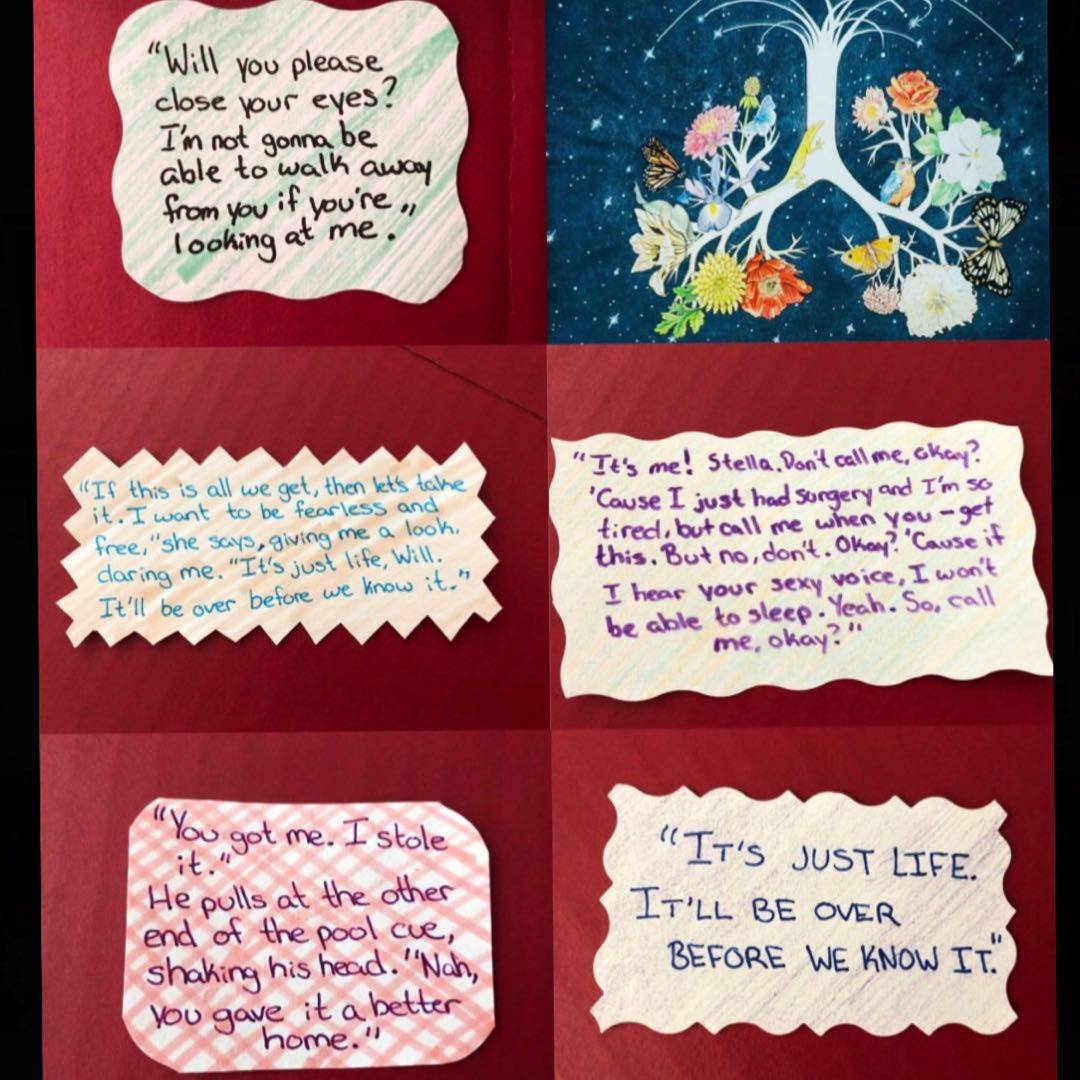 "Will you please
close your eyes?
I'm not gonna be
able to walk away
from you if you're
looking at me."
"If this is all we get, then let's take
it. I want to be fearless and
free," she says, giving me a look,
daring me. "It's just life, Will.
It'll be over before we know it."
"It's me! Stella. Don't call me, okay?
'Cause I just had surgery and I'm so
tired, but call me when you - get
this. But no, don't. Okay? 'Cause if
I hear your sexy voice, I won't
be able to sleep. Yeah. So, call
me, okay?"
"You got me. I stole
it."
He pulls at the other
end of the pool cue,
shaking his head. "Nah,
you gave it a better
home."
"IT'S JUST LIFE.
IT'LL BE OVER
BEFORE WE KNOW IT."